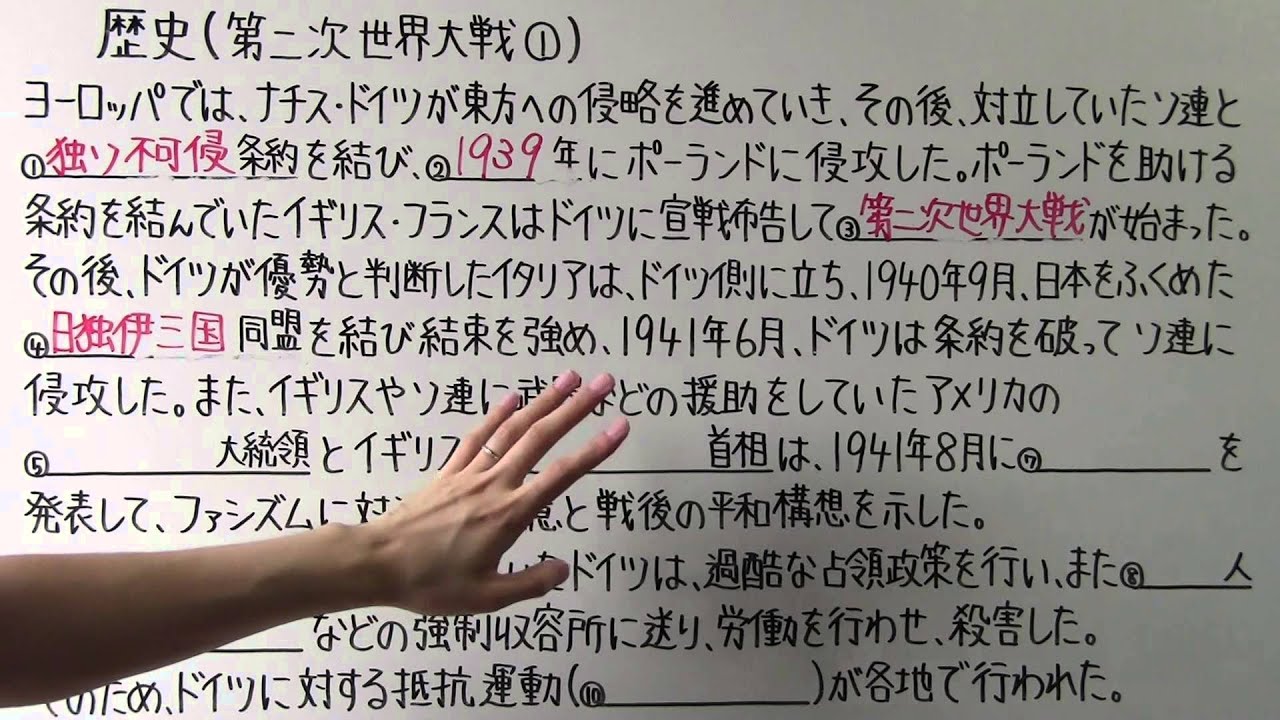 歴史(第二次世界大戦①)
ヨーロッパでは、ナチス・ドイツが東方への侵略を進めていき、その後、対立していたソ連と
①独ソ不可侵条約を結び、②1939年にポーランドに侵攻した。ポーランドを助ける
条約を結んでいたイギリス・フランスはドイツに宣戦布告して③第二次世界大戦が始まった。
その後、ドイツが優勢と判断したイタリアは、ドイツ側に立ち、1940年9月、日本をふくめた
④日独伊三国同盟を結び結束を強め、1941年6月、ドイツは条約を破ってソ連に
侵攻した。また、イギリスやソ連に などの援助をしていたアメリカの
⑤ 大統領とイギリス 首相は、1941年8月に⑦ を
発表して、ファシズムに対 と戦後の平和構想を示した。
いたドイツは、過酷な占領政策を行い、また⑧ 人
などの強制収容所に送り、労働を行わせ、殺害した。
のため、ドイツに対する抵抗運動(⑩ )が各地で行われた。